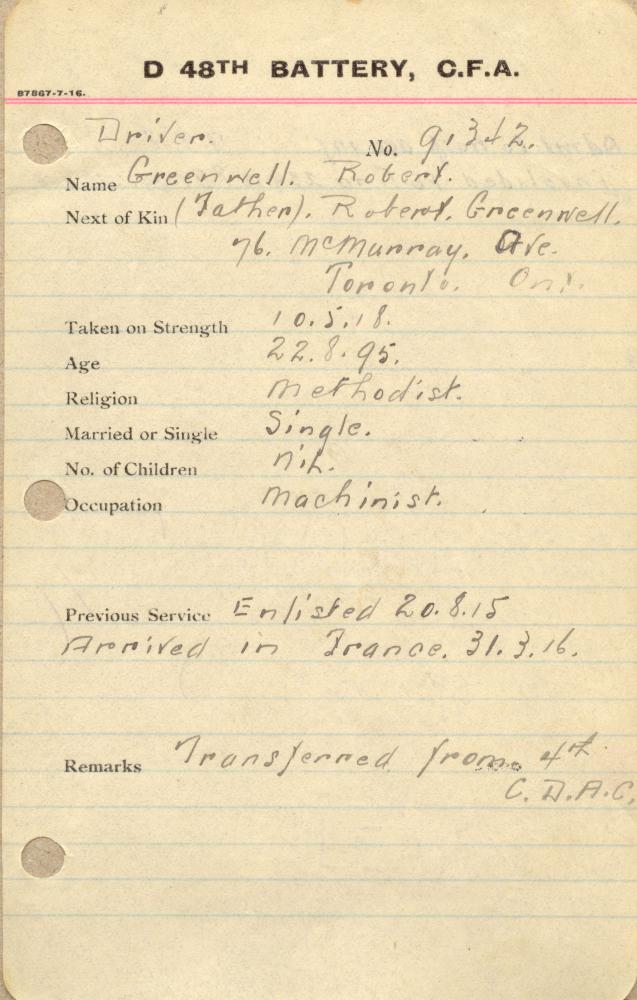 D 48TH BATTERY, C.F.A.
87867-7-16.
Driver. No. 91342.
Name Greenwell. Robert.
Next of Kin (Father). Robert. Greenwell.
76. McMurray. Ave.
Toronto. Ont.
Taken on Strength 10.5.18.
Age 22.8.95.
Religion Methodist.
Married or Single Single.
No. of Children Nil.
Occupation Machinist.
Previous Service Enlisted 20.8.15
Arrived in France. 31.3.16.
Remarks Transferred from 4th
C. D.A.C.